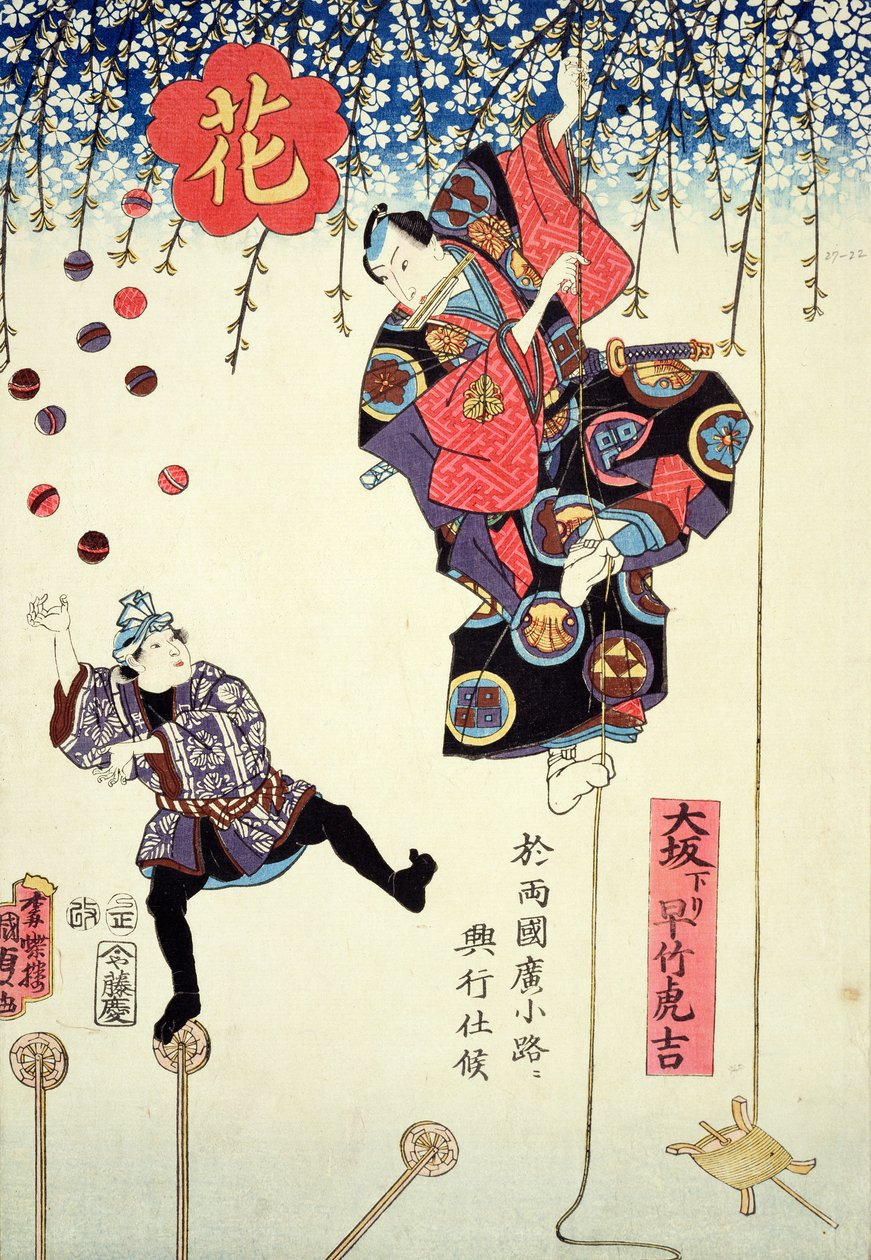 花
27-22
大坂下り早竹虎吉
於両國廣小路ニ
興行仕候
改
巳正
今や藤慶
一壽蝶楼
國貞画